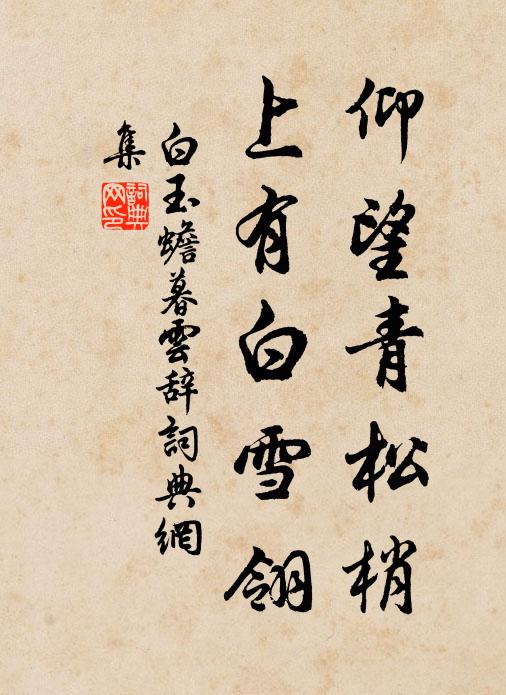 仰望青松梢
上有白雪翎
白玉蟾暮雲辭詞典網
集
詞典
网印